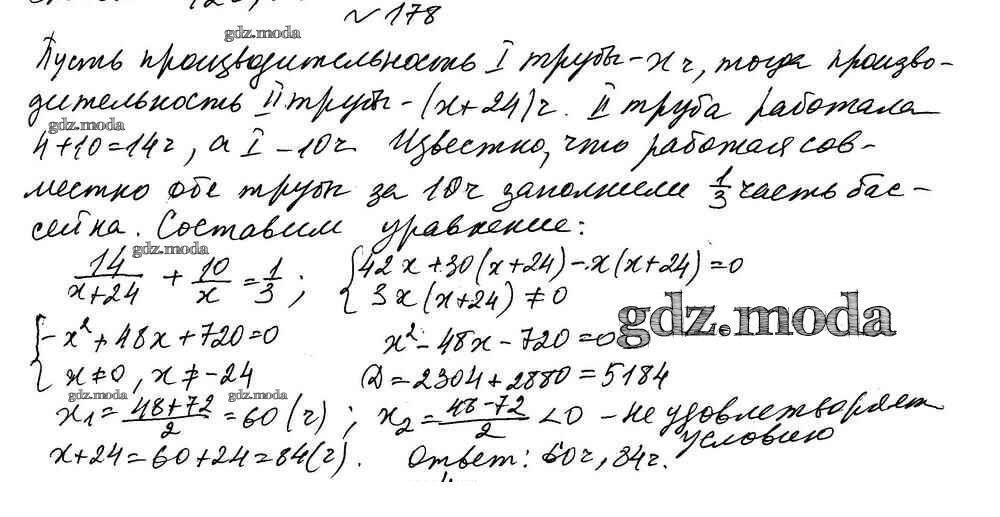 № 178
gdz.moda
Пусть производительность I трубы - x ч, тогда произво-
дительность II трубы - (x+24) ч. II труба работала
gdz.moda
4+10=14 ч, а I - 10 ч. Известно, что работая сов-
местно обе трубы за 10 ч заполнили 1/3 часть бас-
сейна. Составим уравнение:
gdz.moda
14/(x+24) + 10/x = 1/3 ; { 42x+30(x+24)-x(x+24)=0
{ 3x(x+24)≠0
gdz.moda
{ -x²+48x+720=0 x²-48x-720=0
{ x≠0, x≠-24 D=2304+2880=5184
gdz.moda gdz.moda
x₁=(48+72)/2=60 (ч) ; x₂=(48-72)/2 <0 - не удовлетворяет
условию
x+24=60+24=84(ч). Ответ: 60 ч, 84 ч.